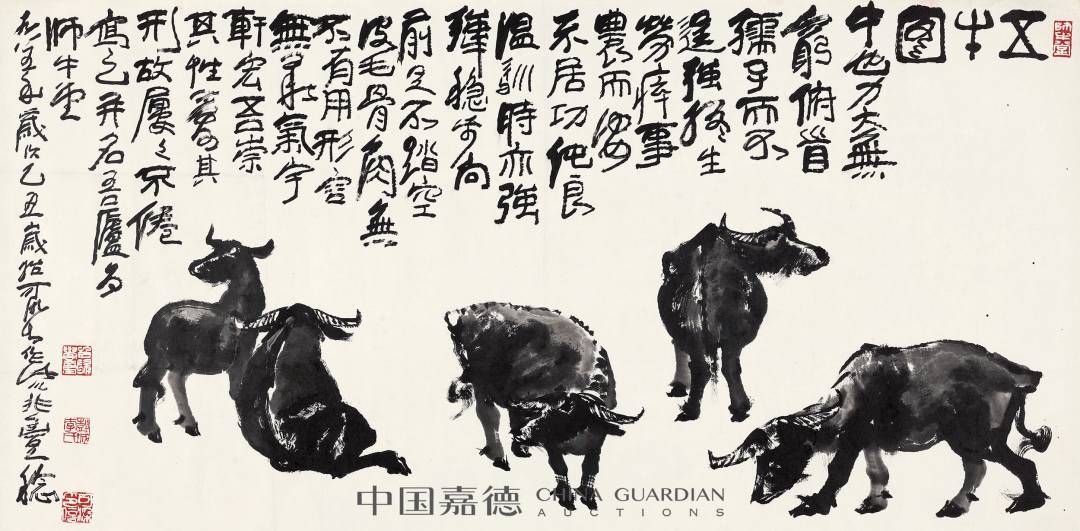 師牛堂
五牛圖
牛也力大無
窮俯首
孺子而不
逞強終生
勞瘁事
農而安
不居功純良
溫馴時亦強
犟穩步向
前足不踏空
皮毛骨肉無
不有用形容
無華氣宇
軒宏吾崇
其性愛其
形故屢々不倦
寫之并名吾廬為
師牛堂
五年歲次乙丑歲始可染作
中国嘉德 CHINA GUARDIAN
AUCTIONS